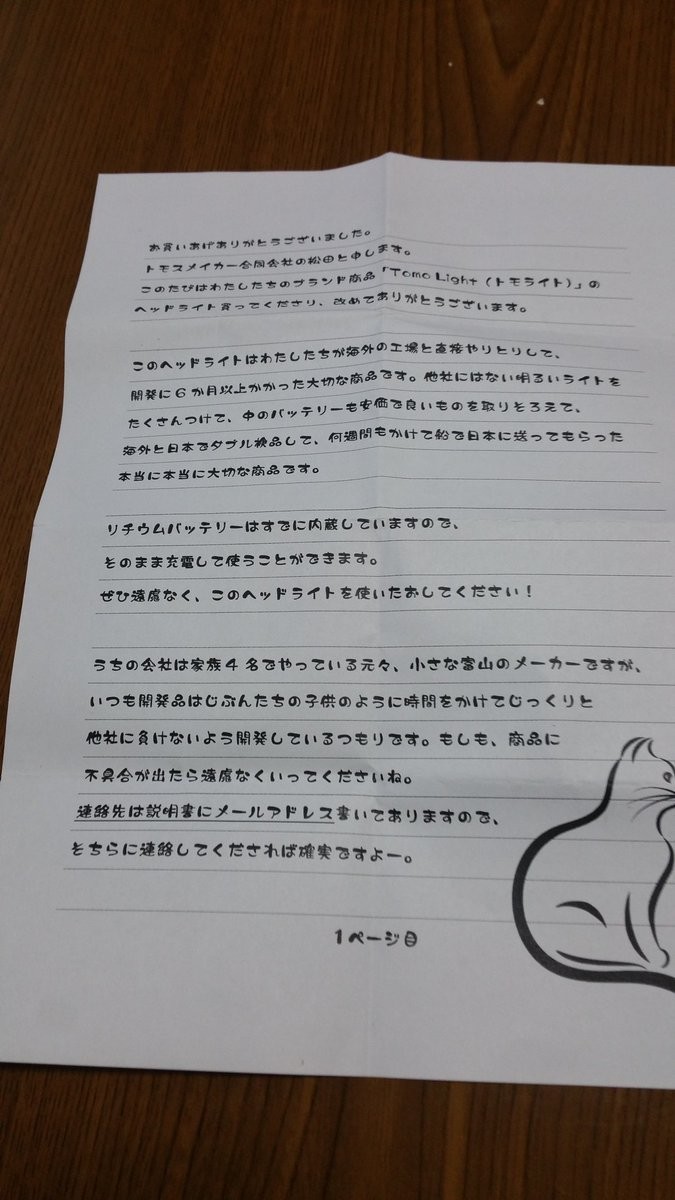 お買いあげありがとうございました。
トモスメイカー合同会社の松田と申します。
このたびはわたしたちのブランド商品「Tomo Light（トモライト）」の
ヘッドライト買ってくださり、改めてありがとうございます。
このヘッドライトはわたしたちが海外の工場と直接やりとりして、
開発に６か月以上かかった大切な商品です。他社にはない明るいライトを
たくさんつけて、中のバッテリーも安価で良いものを取りそろえて、
海外と日本でダブル検品して、何週間もかけて船で日本に送ってもらった
本当に本当に大切な商品です。
リチウムバッテリーはすでに内蔵していますので、
そのまま充電して使うことができます。
ぜひ遠慮なく、このヘッドライトを使いたおしてください！
うちの会社は家族４名でやっている元々、小さな富山のメーカーですが、
いつも開発品はじぶんたちの子供のように時間をかけてじっくりと
他社に負けないよう開発しているつもりです。もしも、商品に
不具合が出たら遠慮なくいってくださいね。
連絡先は説明書にメールアドレス書いてありますので、
そちらに連絡してくだされば確実ですよー。
１ページ目